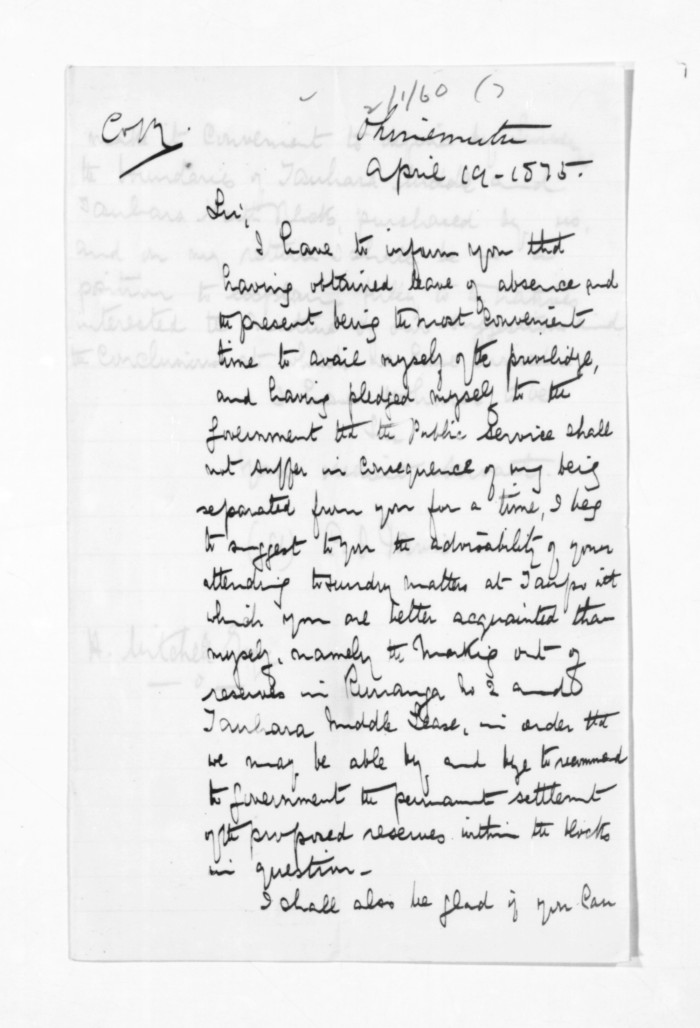 2/1/60
Copy.
Ohinemutu
April 19-1875.
Sir,
I have to inform you that
having obtained leave of absence and
the present being the most convenient
time to avail myself of the priviledge,
and having pledged myself to the
Government that the Public Service shall
not suffer in consequence of my being
separated from you for a time, I beg
to suggest to you the advisability of your
attending to sundry matters at Taupo with
which you are better acquainted than
myself, namely the marking out of
reserves in Runanga No 2 and
Tauhara Middle Lease, in order that
we may be able by and bye to recommend
to Government the permanent settlement
of the proposed reserves within the blocks
in question-
I shall also be glad if you can